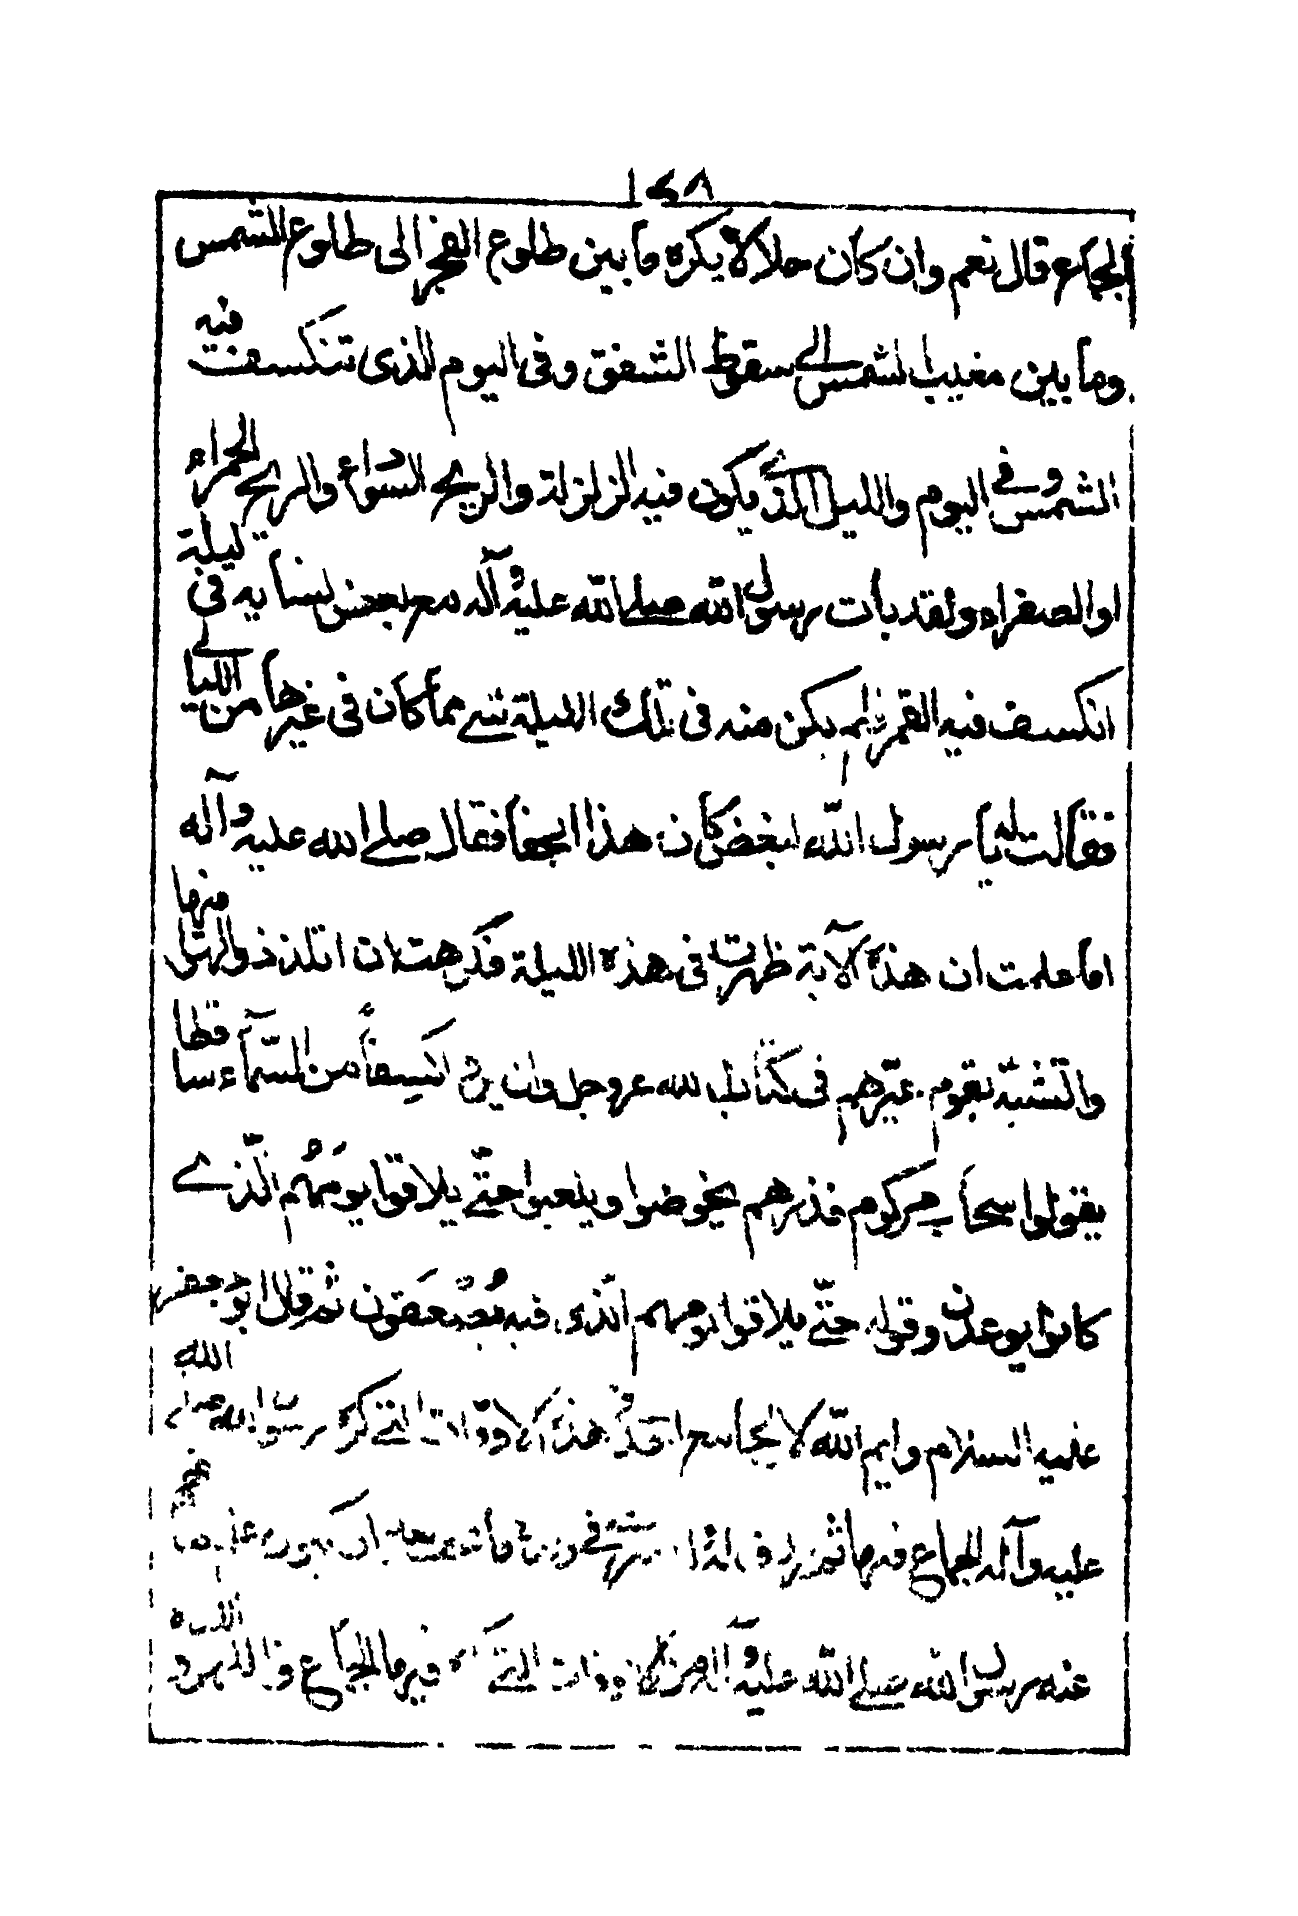 ١٤٨
الجماع قال نعم وان كان حلالا يكره ما بين طلوع الفجر الى طلوع الشمس
وما بين مغيب الشمس الى سقوط الشفق وفى اليوم الذى تنكسف فيه
الشمس وفى اليوم والليل الذى يكون فيه الزلزلة والريح السوداء والريح الحمراء
او الصفراء ولقد بات رسول الله صلى الله عليه وآله مع بعض نسايه فى ليلة
انكسف فيه القمر فلم يكن منه فى تلك الليلة شى مما كان فى غيرها من الليالى
فقالت له يا رسول الله ابغض كان هذا الجفا فقال صلى الله عليه وآله
اما علمت ان هذه الآية ظهرت فى هذه الليلة فكرهت ان اتلذذ والهو منها
واتشبه بقوم عيرهم فى كتابه الله عز وجل وان يروا كسفاً من السّمآء ساقطا
يقولوا سحاب مركوم فذرهم يخوضوا ويلعبوا حتّى يلاقوا يومهم الّذى
كانوا يوعدون وقوله حتّى يلاقوا يومهم الّذى فيه يُصْعقون ثم قال ابو جعفر
عليه السلام وايم الله لا يجامع احد فى هذه الاوقات التى كره رسول الله صلى الله
عليه وآله الجماع فيها ثم رزق ولدا
عنه رسول الله صلى الله عليه وآله من الاوقات التى كره فيها الجماع واللهو و